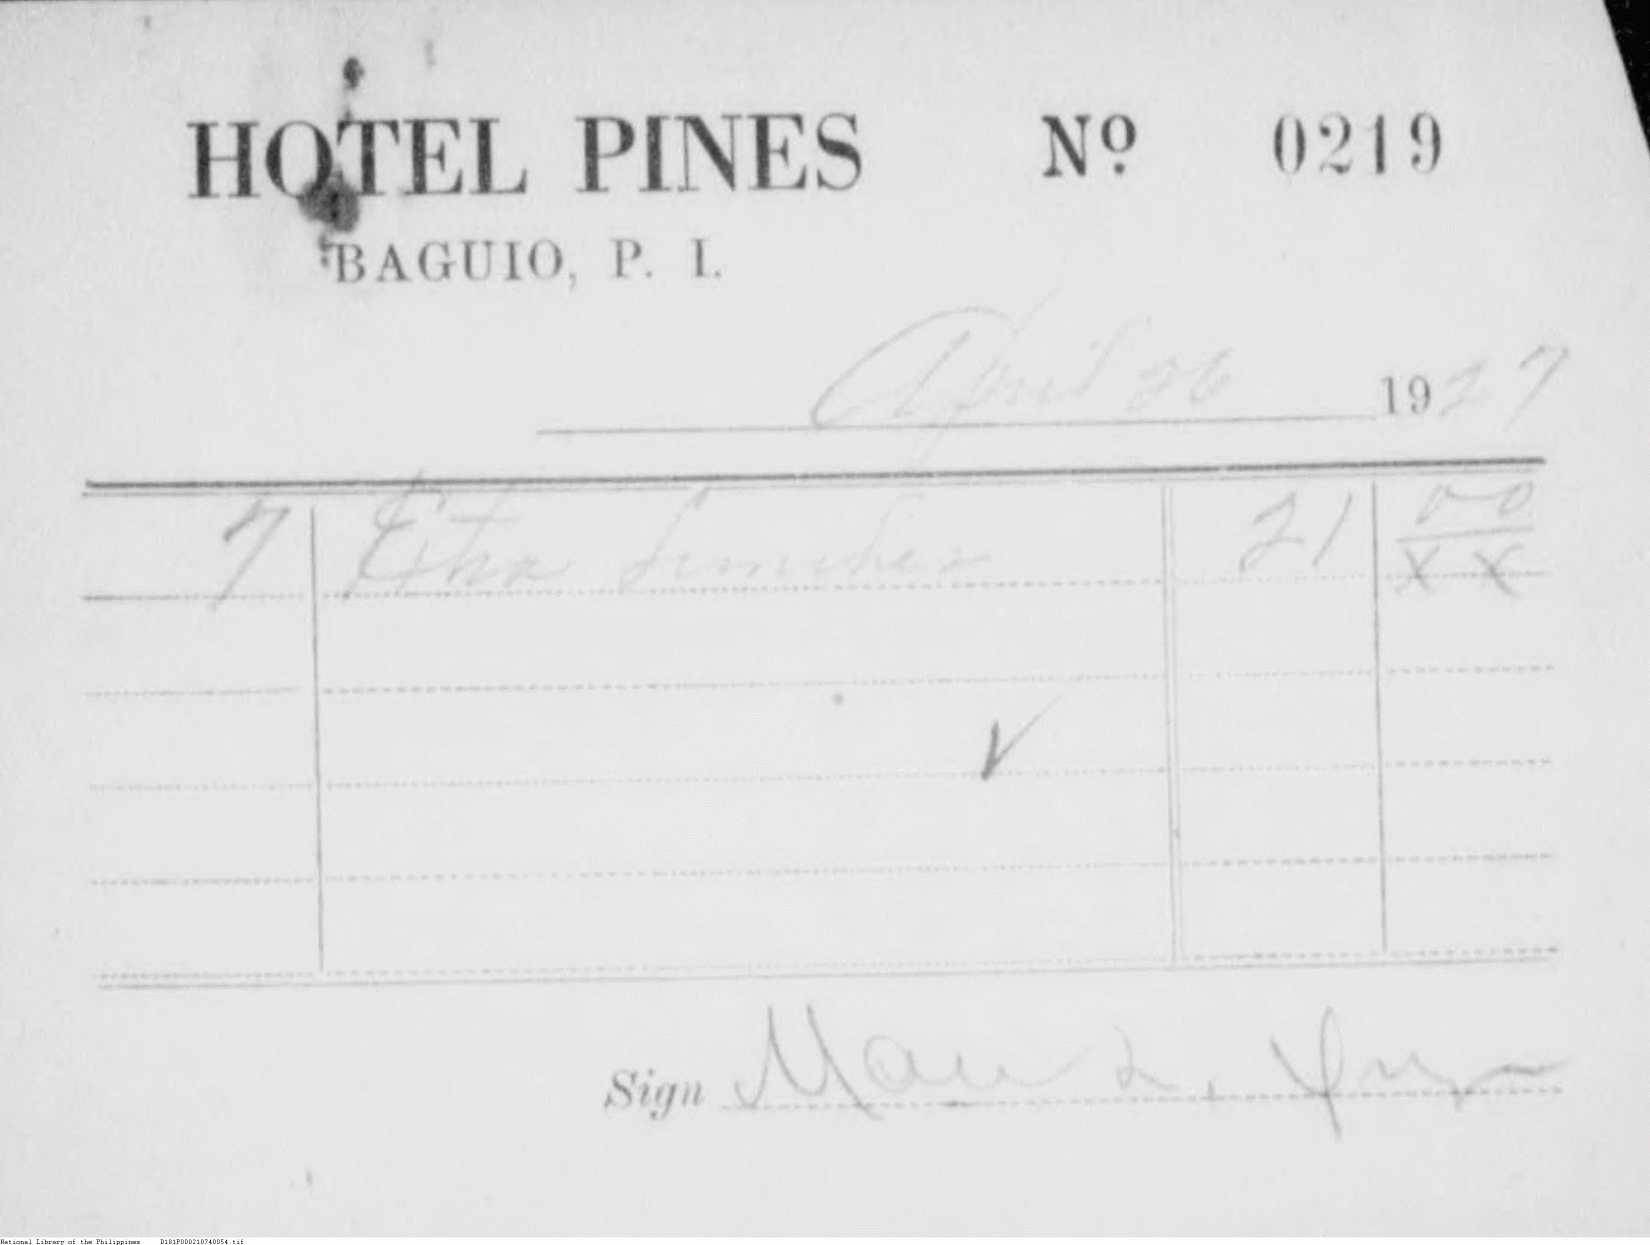 HOTEL PINES Nº 0219
BAGUIO, P. I.
April 26 1927
7 Xtra Lunches 21 00/xx
Sign
National Library of the Philippines D101P000210740054.tif